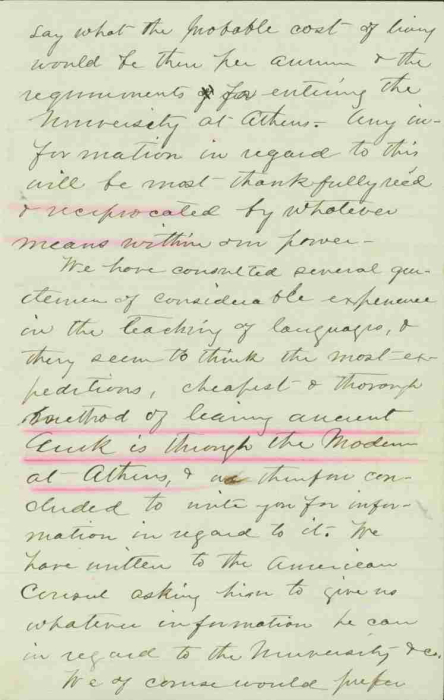 say what the probable cost of living
would be there per annum & the
requirements for entering the
University at Athens. Any in-
formation in regard to this
will be most thankfully rec'd
& reciprocated by whatever
means within our power—
We have consulted several gen-
tlemen of considerable experience
in the teaching of languages, &
they seem to think the most ex-
peditious, cheapest & thorough
method of learing ancient
Greek is through the Modern
at Athens, & therefore con-
cluded to write you for infor-
mation in regard to it. We
have written to the American
Consul asking him to give us
whatever information he can
in regard to the University &c.
We of course would prefer